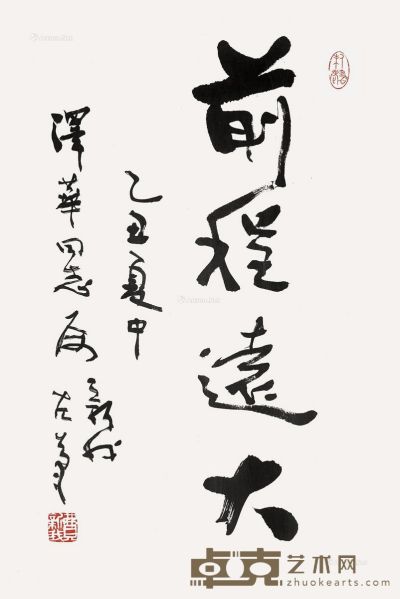 前程遠大
乙丑夏中
澤華同志屬
卓克艺术网
zhuokearts.com